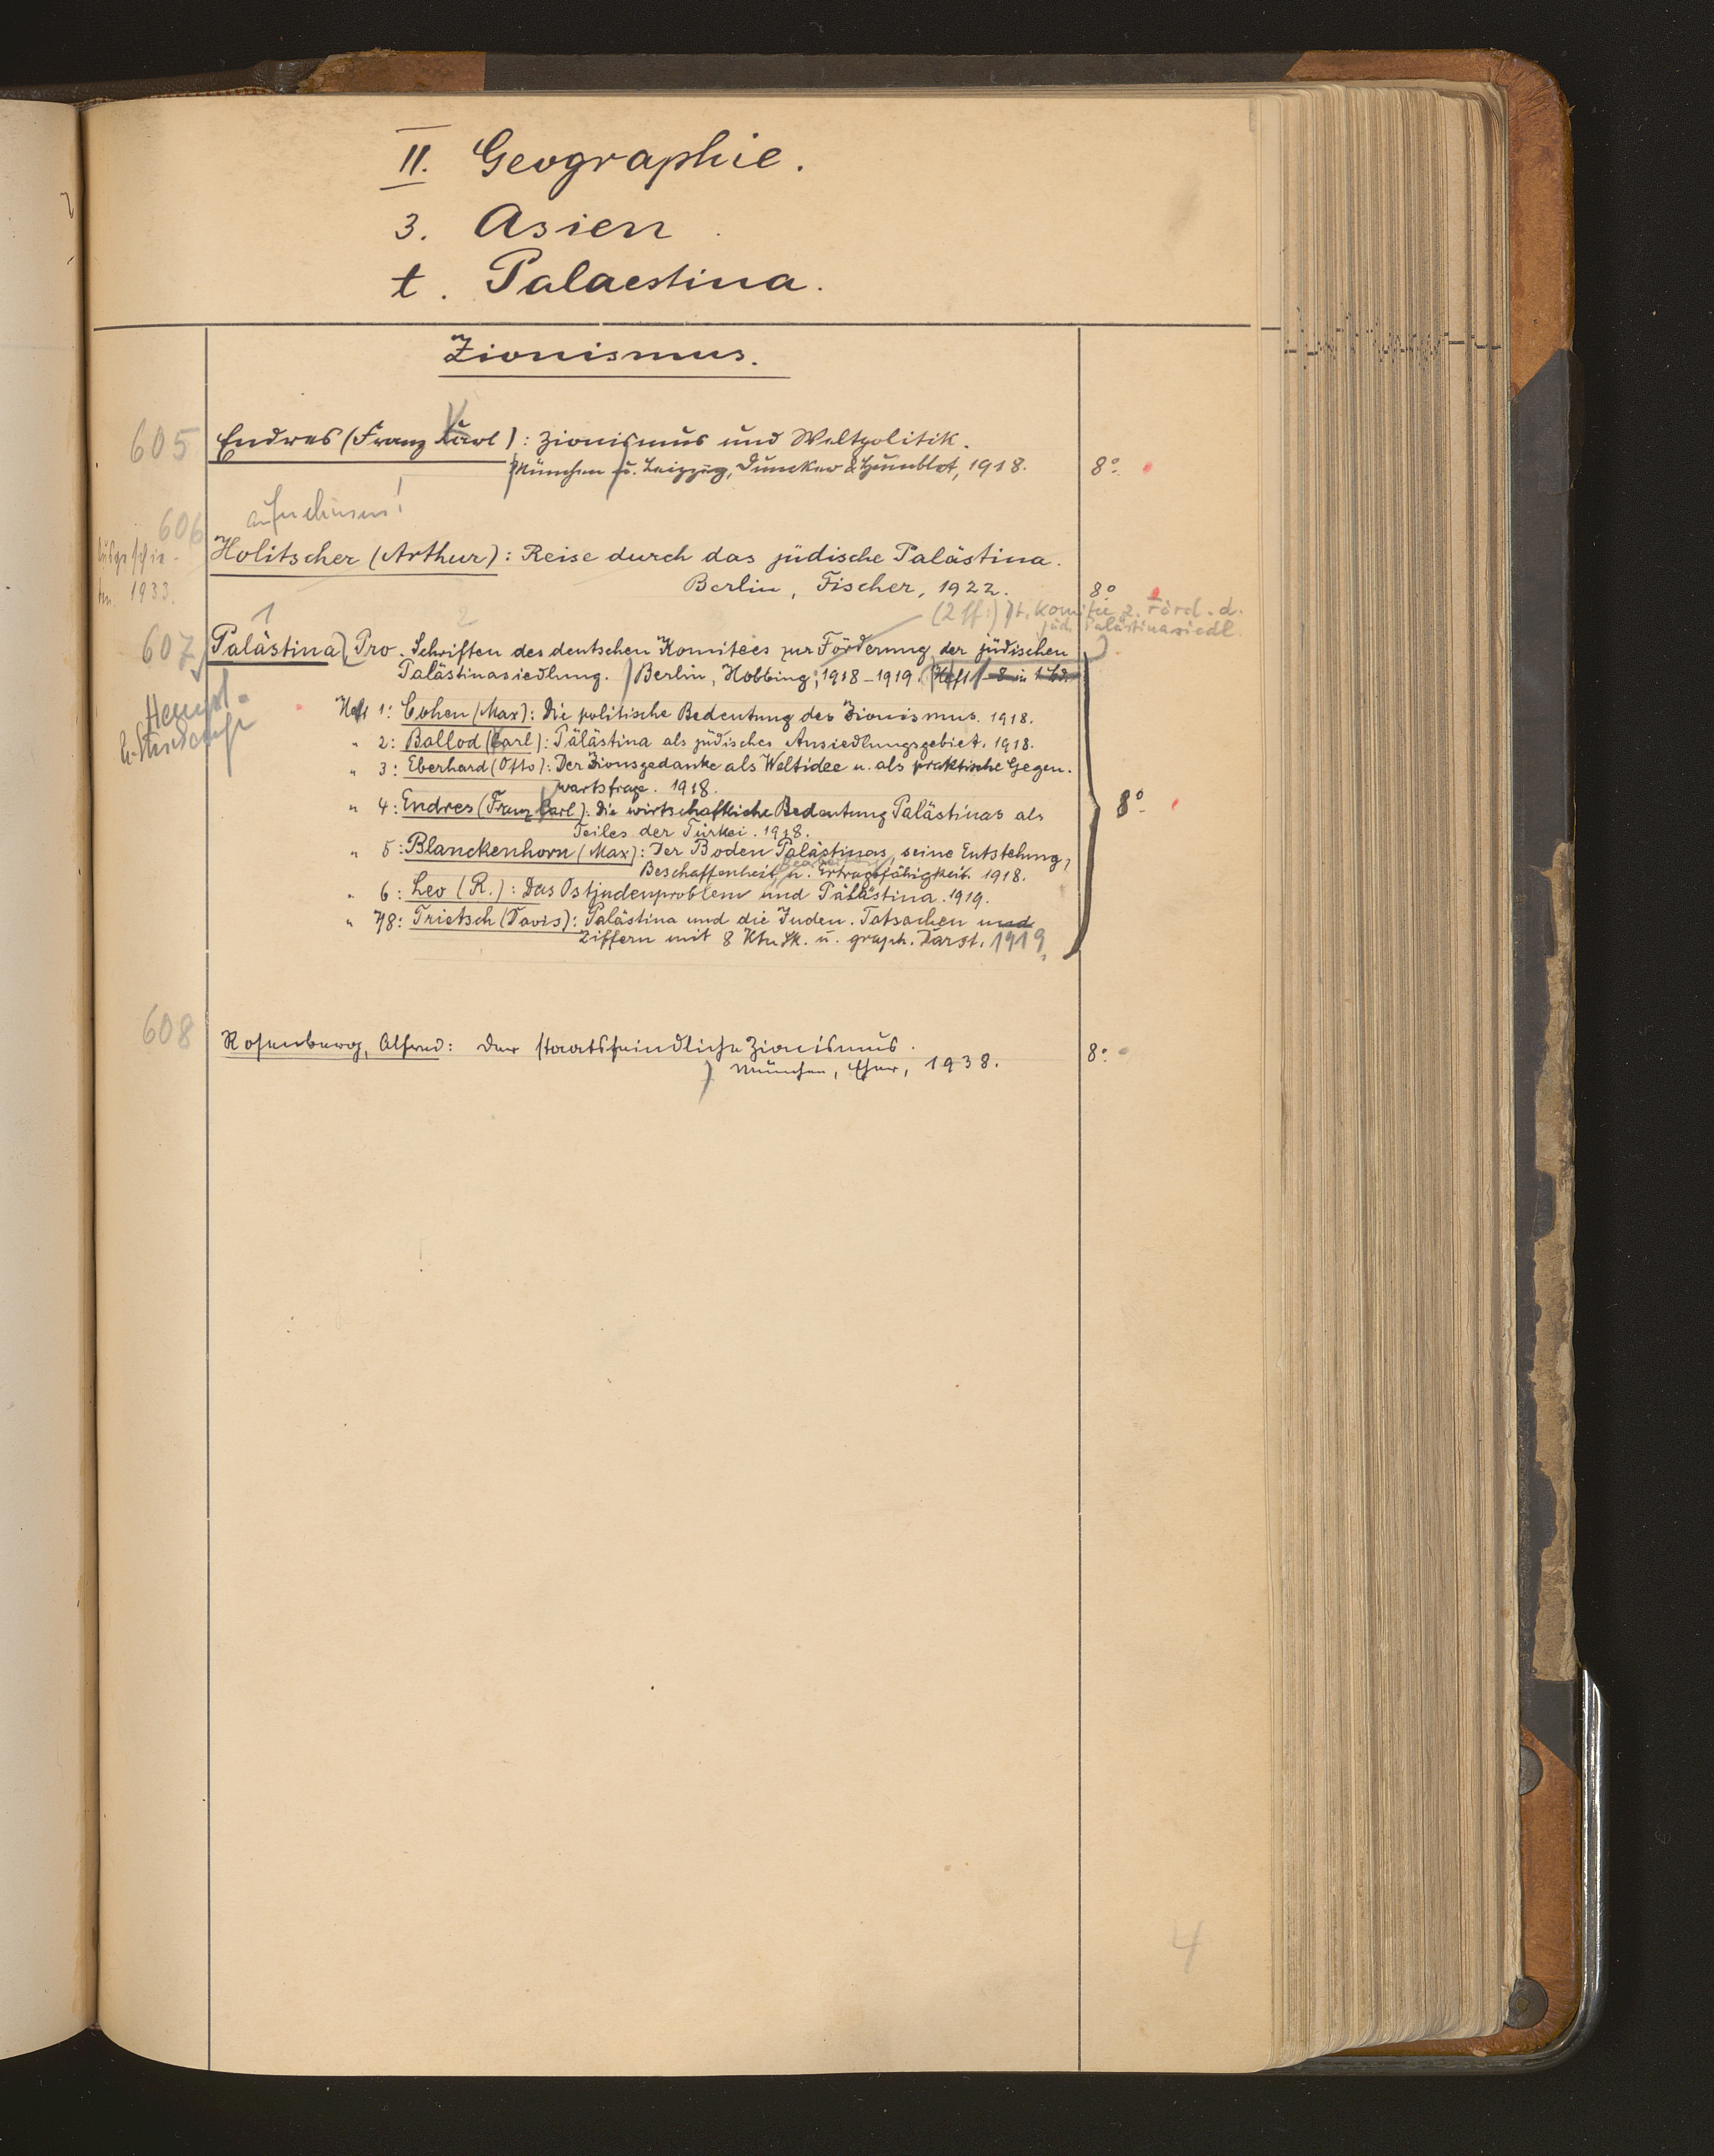 II. Geographie.
3. Asien.
t. Palaestina.
Zionismus.
605 Endres (Franz Karl): Zionismus und Weltpolitik.
München u. Leipzig, Duncker & Humblot, 1918. 8°.
aufnehmen!
606
Ausgeschie-
den 1933.
Holitscher (Arthur): Reise durch das jüdische Palästina.
Berlin, Fischer, 1922. 8°
(2 ff:) Dt. Komitee z. Förd. d.
jüd. Palästinasiedl.
1 2
607 Palästina, Pro. Schriften des deutschen Komitees zur Förderung der jüdischen
Palästinasiedlung. Berlin, Hobbing, 1918-1919. Heft 1-8 in 1 Bd.
Heft 1: Cohen (Max): Die politische Bedeutung des Zionismus. 1918.
" 2: Ballod (Carl): Palästina als jüdisches Ansiedlungsgebiet. 1918.
" 3: Eberhard (Otto): Der Zionsgedanke als Weltidee u. als praktische Gegen-
wartsfrage. 1918.
" 4: Endres (Franz Carl): Die wirtschaftliche Bedeutung Palästinas als 8°
Teiles der Türkei. 1918.
" 5: Blanckenhorn (Max): Der Boden Palästinas, seine Entstehung,
Beschaffenheit, u. Ertragsfähigkeit. 1918.
" 6: Leo (R.): Das Ostjudenproblem und Palästina. 1919.
" 7/8: Trietsch (Davis): Palästina und die Juden. Tatsachen und
Ziffern mit 8 Ktn Sk. u. graph. Darst. 1919.
608 Rosenberg, Alfred: Der staatsfeindliche Zionismus. 8°
München, Eher, 1938.
4